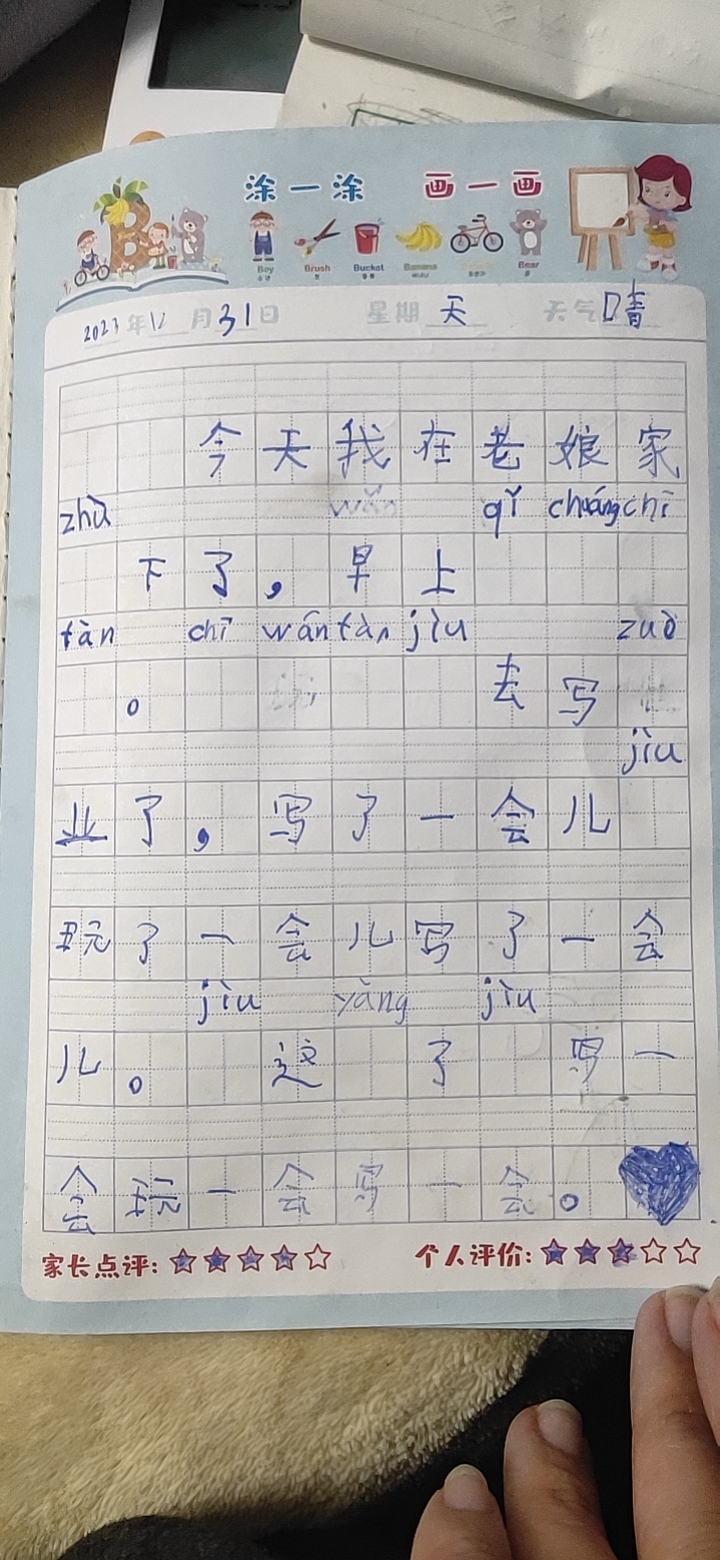 涂一涂 画一画
Boy Brush Bucket Banana Bear
2023年12月31日 星期天 天气晴
今天我在老娘家
zhù qǐ chuáng chī
下了，早上
fàn chī wán fàn jìu zuò
。去写
jìu
业了，写了一会儿
玩了一会儿写了一会
jìu yàng jìu
儿。这了写一
会玩一会写一会。
家长点评： 个人评价：